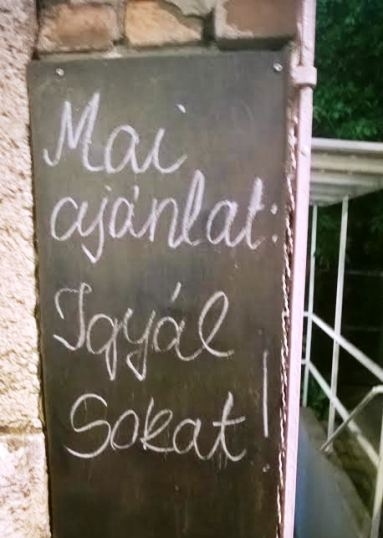 Mai
ajánlat:
Igyál
Sokat!